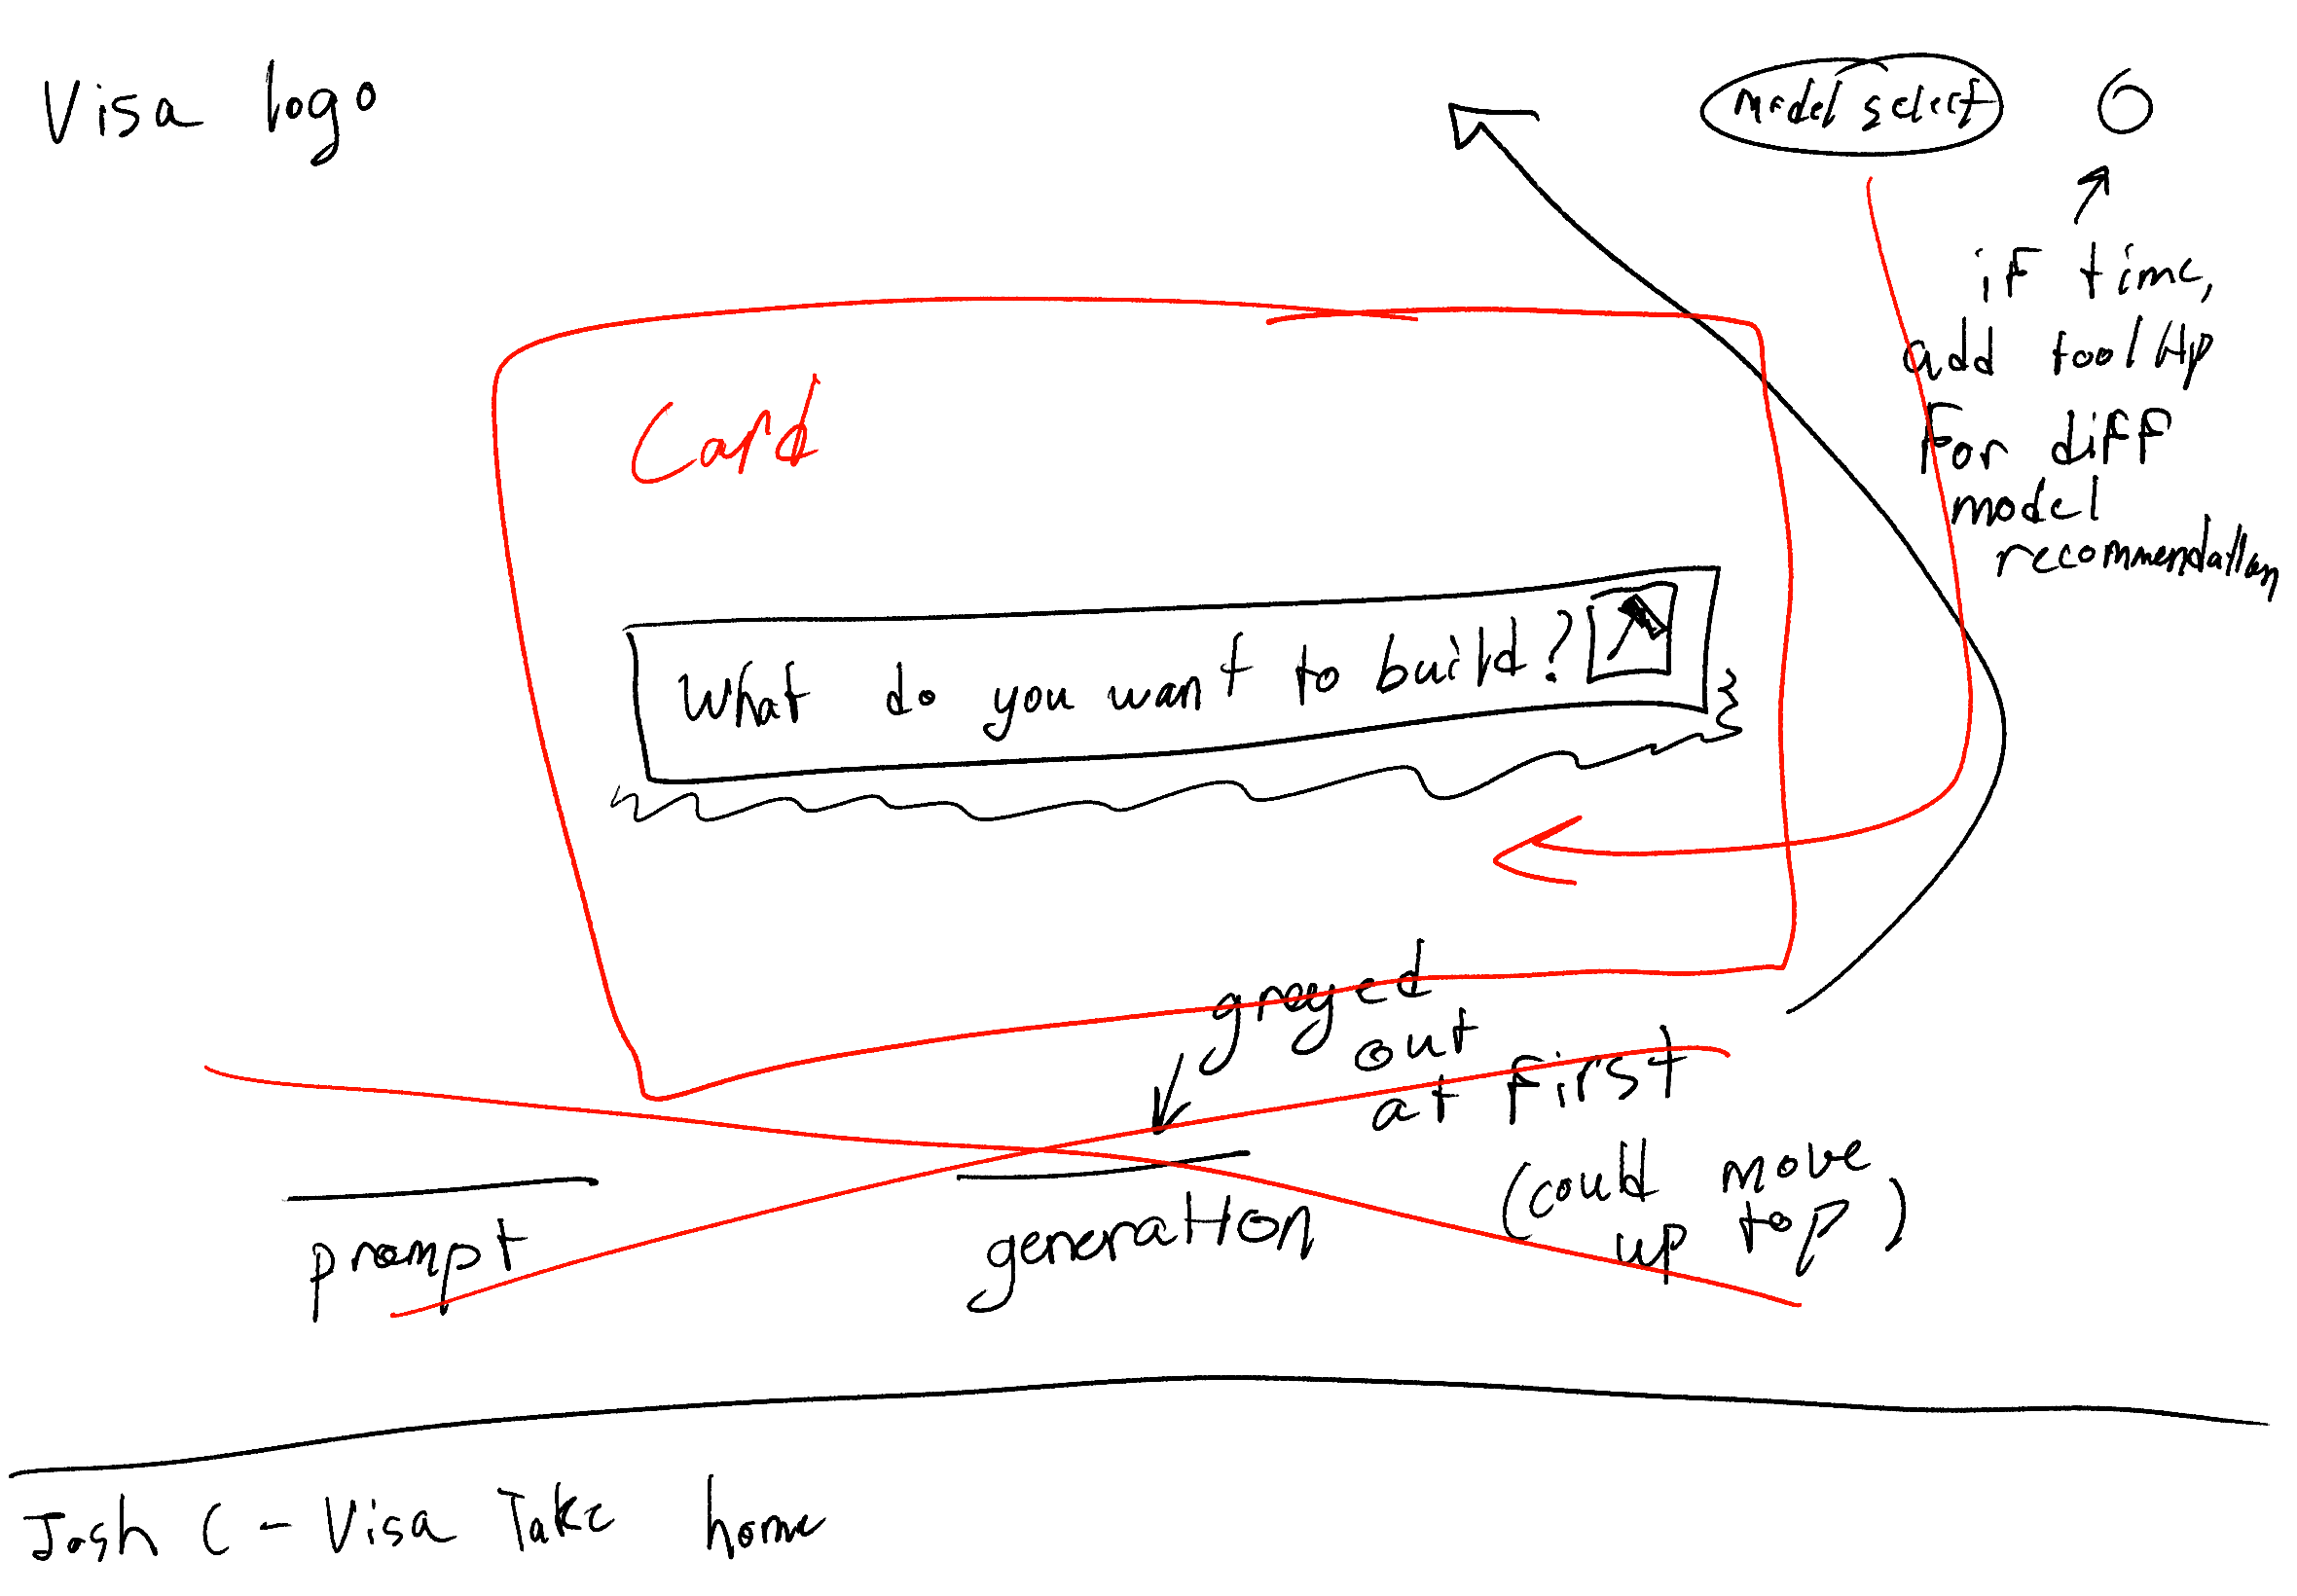 Visa logo
model select
if time,
add tooltip
for diff
model
recommendation
Card
What do you want to build?
greyed
out
at first
(could move
up top)
prompt
generation
Josh C - Visa Take home